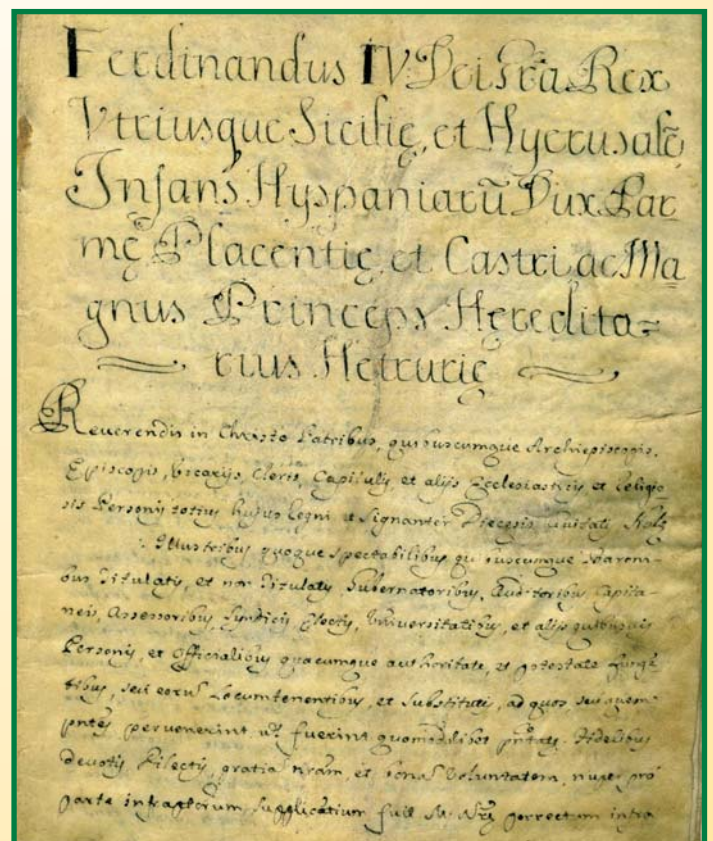 Ferdinandus IV Dei Gr̃a Rex
Vtriusque Sicilię, et Hyerusalẽ,
Infans Hyspaniarũ Dux Par
mę, Placentię, et Castri ac Ma
gnus Princeps Hęredita=
rius Hetrurię
Reuerendis in Christo Patribus, quibuscumque Archiepiscopis,
Episcopis, Vicarijs, Cleris, Capitulis, et alijs Ecclesiasticis et religio
sis Personis totius huius Regni et signanter Diecesis Ciuitatis
Illustribus quoque spectabilibus quibuscumque Baroni-
bus Titulatis, et non Titulatis Gubernatoribus, Auditoribus Capita-
neis, Assessoribus, Syndicis Electis, Vniuersitatibus, et alijs quibusuis
Personis, et Officialibus quacumque authoritate, et potestate fungẽ
tibus, seu eorum Locumtenentibus, et Substitutis, ad quos, seu quem
pñtes peruenerint fuerint quomodolibet pñtatę. Fidelibus
deuotis Dilectis, gratiã nrãm, et bonã Voluntatem, nuper pro
parte infraptorum supplicantium fuit M. Nrę porrectum infra